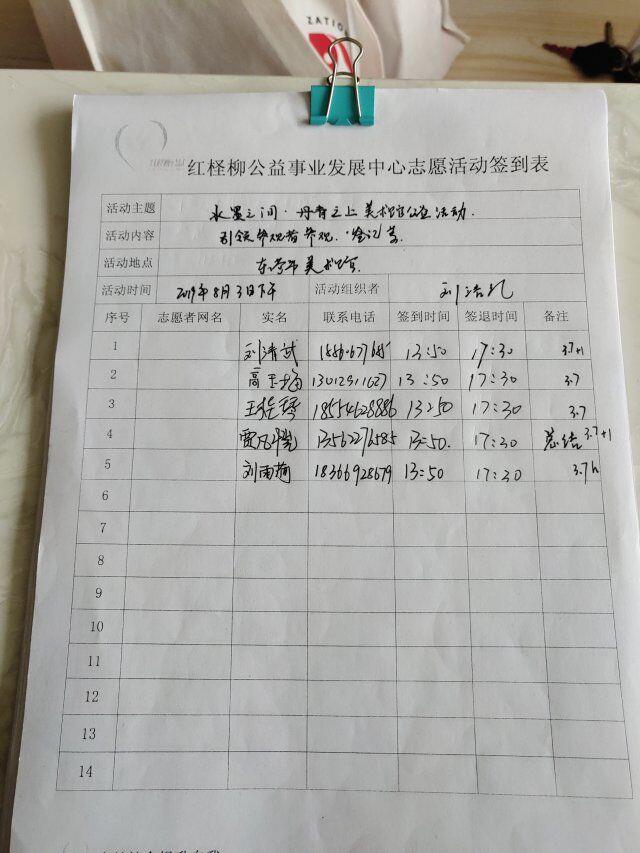 ZATION
红柽柳公益事业发展中心志愿活动签到表
活动主题 水墨之间·丹青之上美术馆公益活动.
活动内容 引领参观者参观.登记等
活动地点 东营市美术馆
活动时间 2019年8月3日下午 活动组织者
序号 志愿者网名 实名 联系电话 签到时间 签退时间 备注
1 刘清武 13:50 17:30 3.7+1
2 高玉梅 13012911627 13:50 17:30 3.7
3 18554628886 13:50 17:30 3.7
4 贾凡凯 13562276585 13:50. 17:30 总结 3.7+1
5 刘雨荷 18366928679 13:50 17:30 3.7h
6
7
8
9
10
11
12
13
14